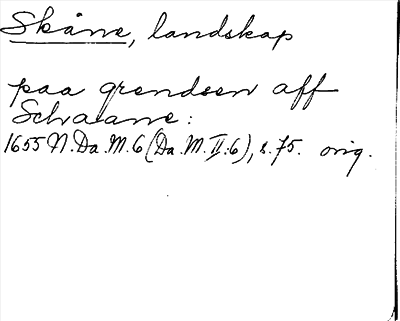 Skåne, landskap
paa grendsen aff
Schaane:
1655 N.Da.M.6 (Da.M.II:6), s.75. orig.